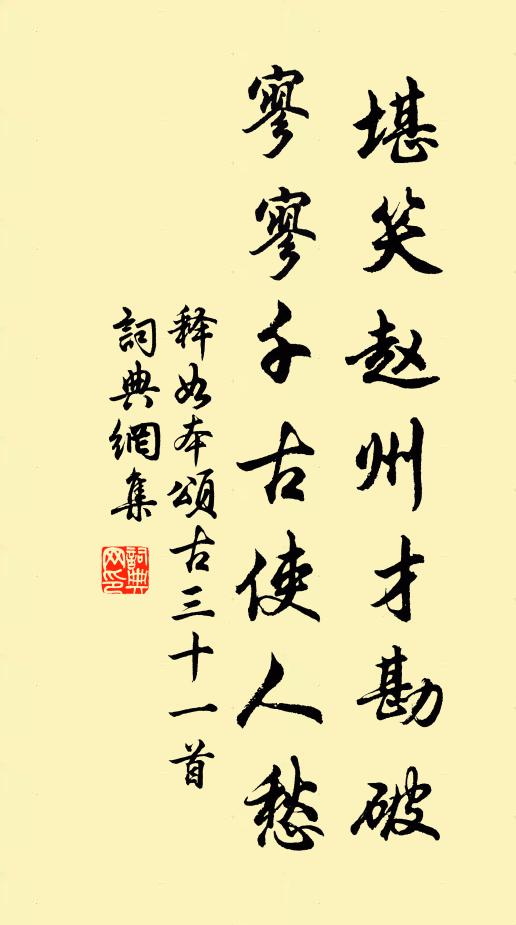 堪笑赵州才勘破
寥寥千古使人愁
释如本颂古三十一首
詞典網集
詞典网印